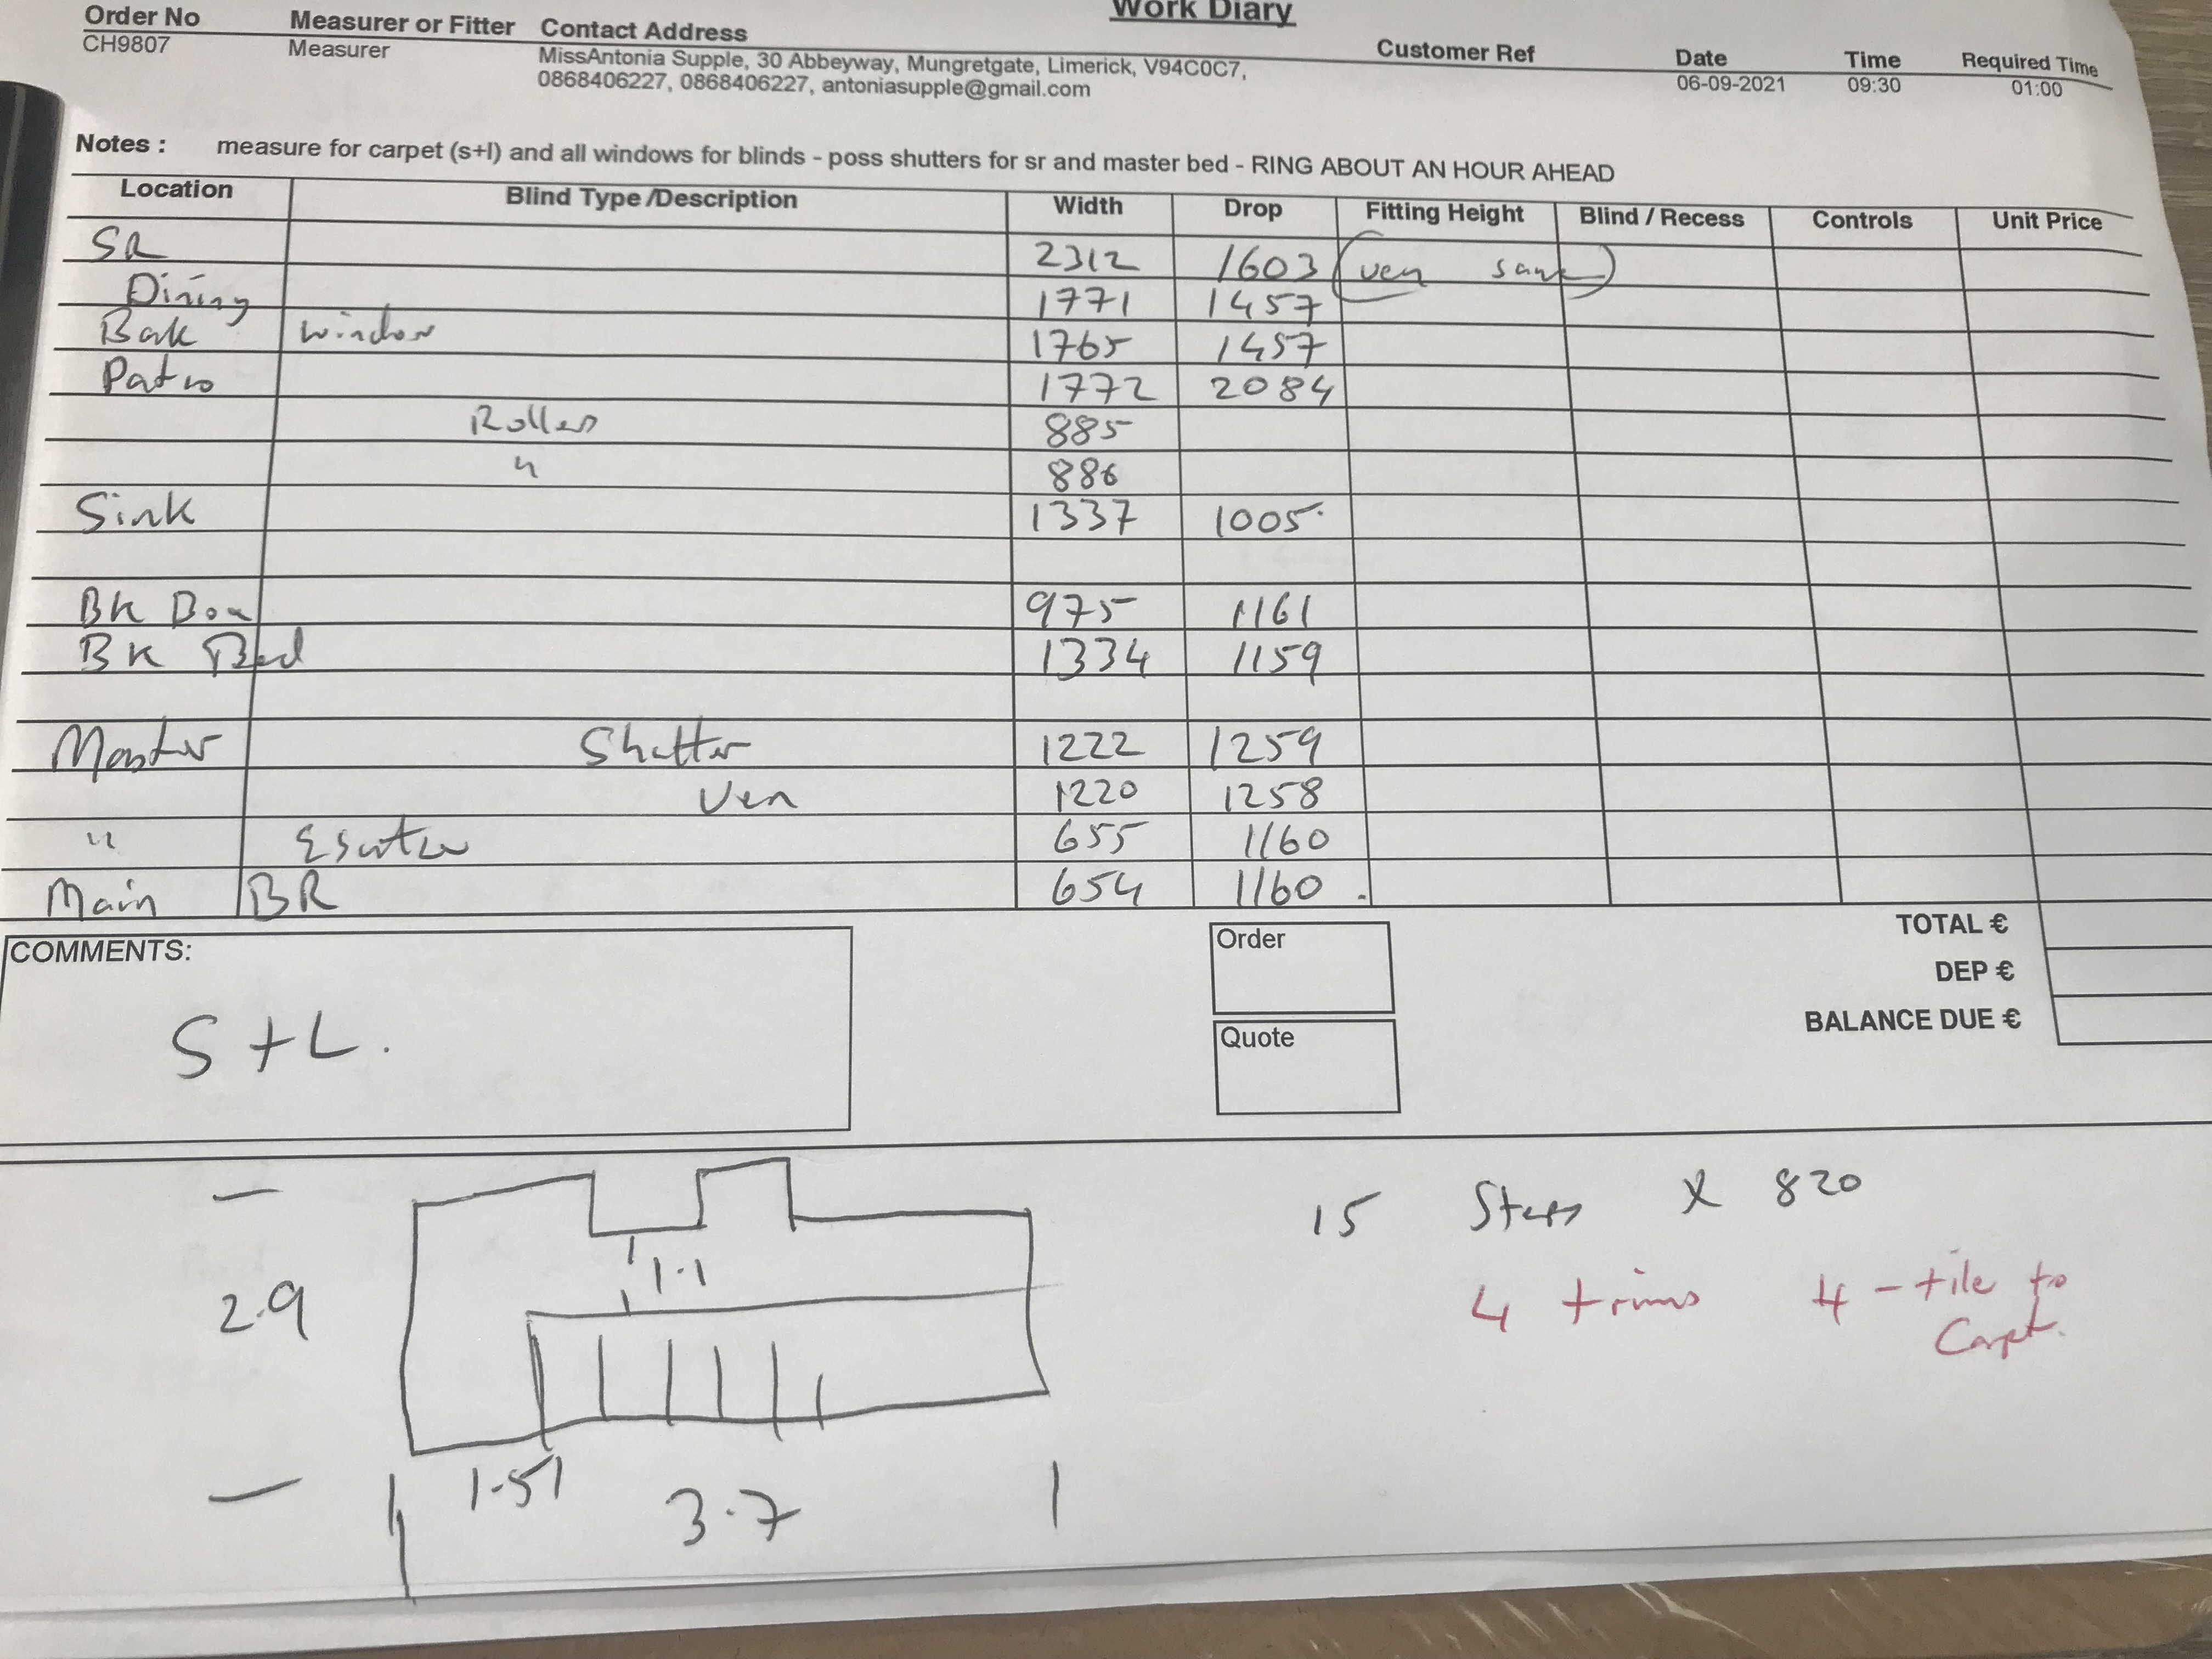 Work Diary
Order No Measurer or Fitter Contact Address Customer Ref Date Time Required Time
CH9807 Measurer MissAntonia Supple, 30 Abbeyway, Mungretgate, Limerick, V94C0C7, 06-09-2021 09:30 01:00
0868406227, 0868406227, antoniasupple@gmail.com
Notes : measure for carpet (s+l) and all windows for blinds - poss shutters for sr and master bed - RING ABOUT AN HOUR AHEAD
Location Blind Type /Description Width Drop Fitting Height Blind / Recess Controls Unit Price
SR 2312 1603 (ven same)
Dining 1771 1457
Bak window 1765 1457
Patio 1772 2084
Roller 885
" 886
Sink 1337 1005
BK Box 975 1161
BK Bed 1334 1159
Master Shutter 1222 1259
Ven 1220 1258
" 655 1160
Main BR 654 1160
COMMENTS:
S+L.
Order
Quote
TOTAL €
DEP €
BALANCE DUE €
15 Steps x 820
4 trims 4 - tile to
Carpt.
1.1
2.9
1.51
3.7